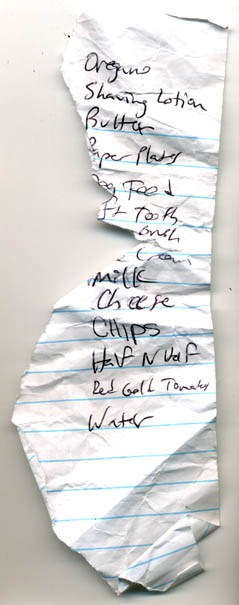 Oregino
Shaving Lotion
Butter
aper Plates
Dog Food
ft Tooth
brush
Cream
Milk
Cheese
Chips
Half N Half
Red Gold Tomatoes
Water